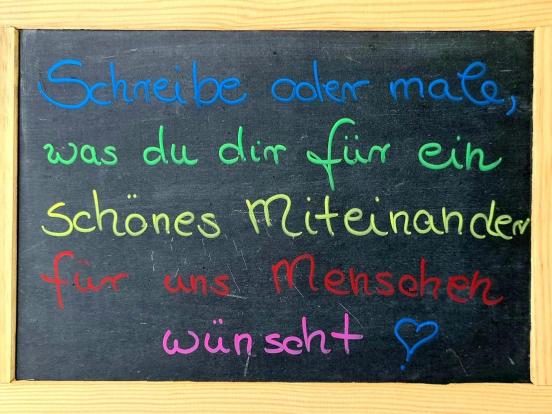 Schreibe oder male,
was du dir für ein
schönes Miteinander
für uns Menschen
wünscht ♡